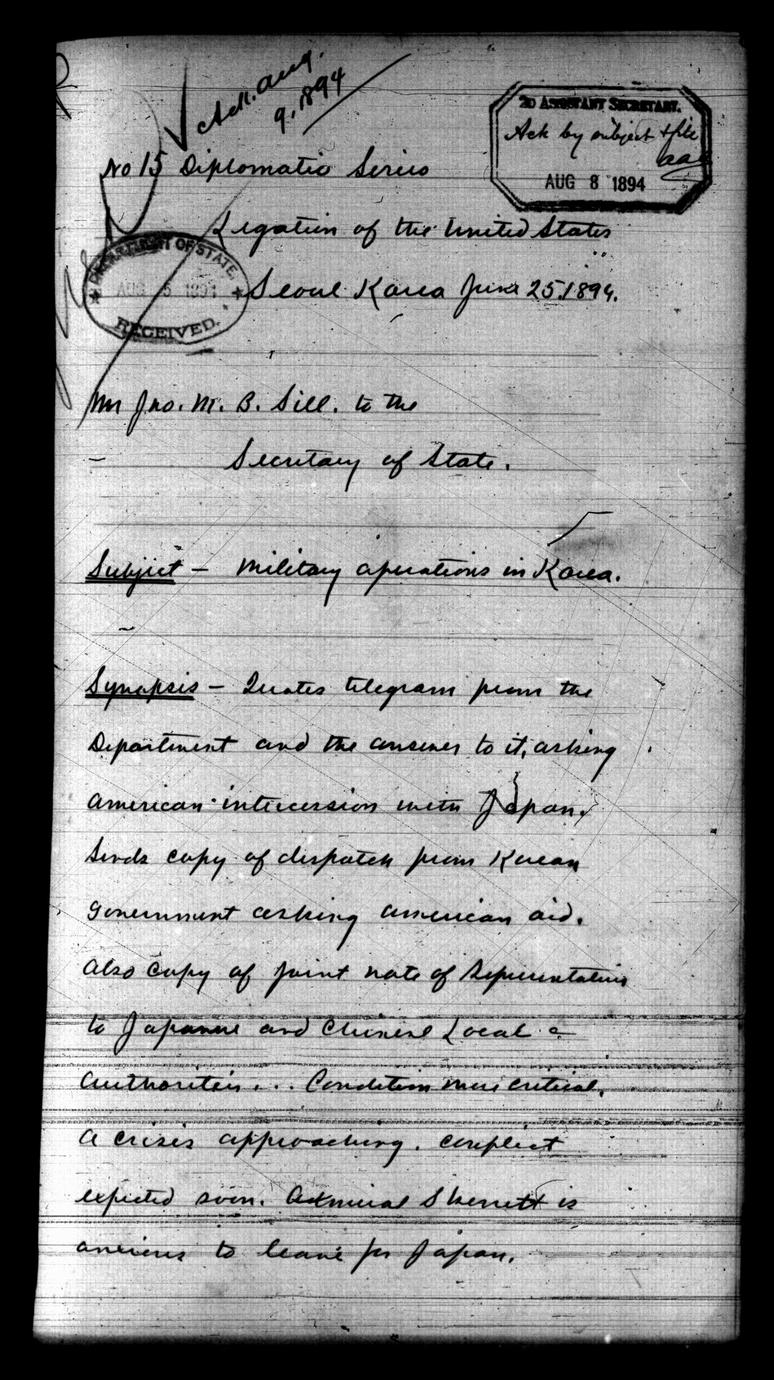 Ack. Aug.
9. 1894
2D ASSISTANT SECRETARY.
Ack by subject & file
aaa
AUG 8 1894
No 15 Diplomatic Series
Legation of the United States
DEPARTMENT OF STATE,
AUG 5 1894
RECEIVED.
Seoul Korea June 25. 1894.
Mr Jno. M. B. Sill. to the
Secretary of State.
Subject – Military operations in Korea.
Synopsis – Quotes telegram from the
Department and the answer to it, asking
American intercession with Japan.
Sends copy of dispatch from Korean
Government asking American aid.
Also copy of joint note of Representatives
to Japanese and Chinese Local
Authorities... Condition more critical.
A crisis approaching. Conflict
expected soon. Admiral Skerrett is
anxious to leave for Japan.